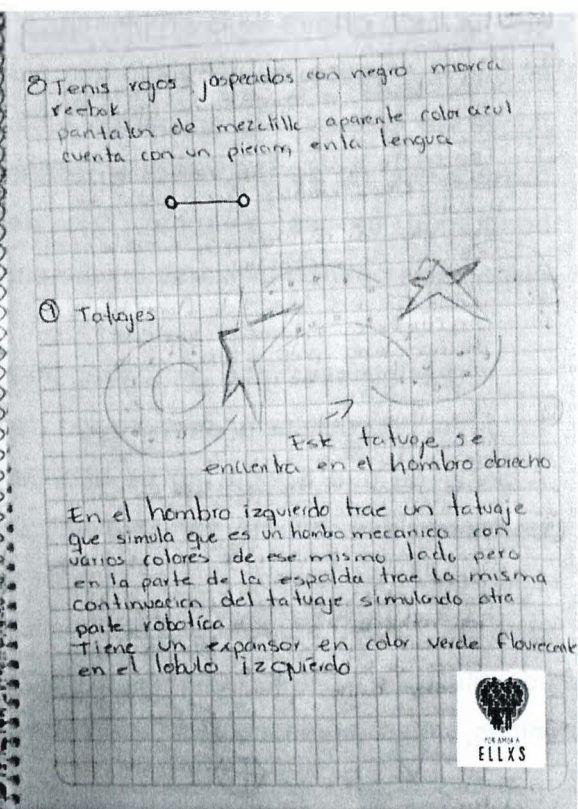 8 Tenis rojos jaspeados con negro marca
reebok
pantalon de mezclilla aparente color azul
cuenta con un piercin, en la lengua
① Tatuajes
Este tatuaje se
encuentra en el hombro derecho
En el hombro izquierdo trae un tatuaje
que simula que es un hombo mecanico con
varios colores de ese mismo lado pero
en la parte de la espalda trae la misma
continuacion del tatuaje simulando otra
parte robotica
Tiene un expansor en color verde flourecente
en el lobulo izquierdo
POR AMOR A
ELLXS